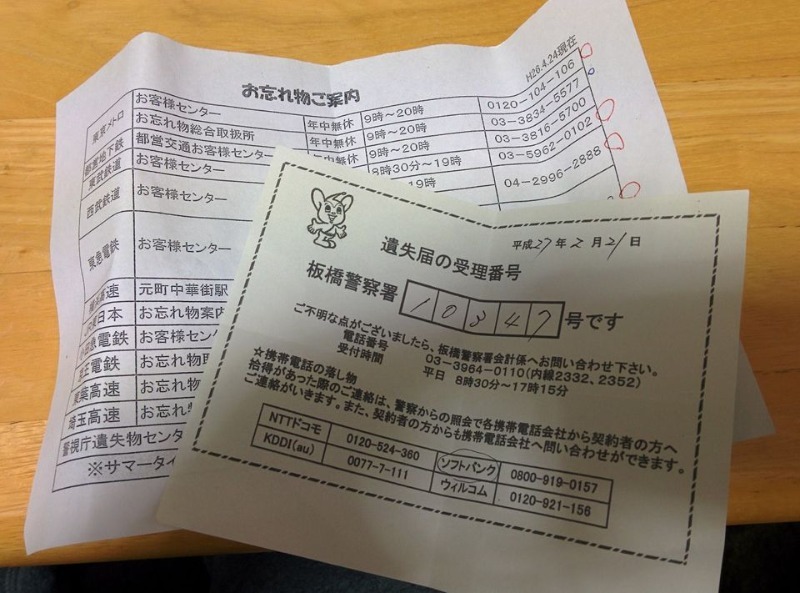 H26.4.24現在
お忘れ物ご案内
東京メトロ お客様センター 年中無休 9時～20時 0120-104-106
お忘れ物総合取扱所 年中無休 9時～20時 03-3834-5577
都営地下鉄 都営交通お客様センター 年中無休 9時～20時 03-3816-5700
東武鉄道 お客様センター 8時30分～19時 03-5962-0102
西武鉄道 お客様センター 19時 04-2996-2888
東急電鉄 お客様センター
高速 元町中華街駅
日本 お忘れ物案内
急電鉄 お客様セン
電鉄 お忘れ物取
葉高速 お忘れ物
埼玉高速 お忘れ物
警視庁遺失物センタ
※サマータイ
平成27年2月21日
遺失届の受理番号
板橋警察署 10347 号です
ご不明な点がございましたら、板橋警察署会計係へお問い合わせ下さい。
電話番号 03-3964-0110(内線2332、2352)
受付時間 平日 8時30分～17時15分
☆携帯電話の落し物
拾得があった際のご連絡は、警察からの照会で各携帯電話会社から契約者の方へ
ご連絡がいきます。また、契約者の方からも携帯電話会社へ問い合わせができます。
NTTドコモ 0120-524-360 ソフトバンク 0800-919-0157
KDDI(au) 0077-7-111 ウィルコム 0120-921-156